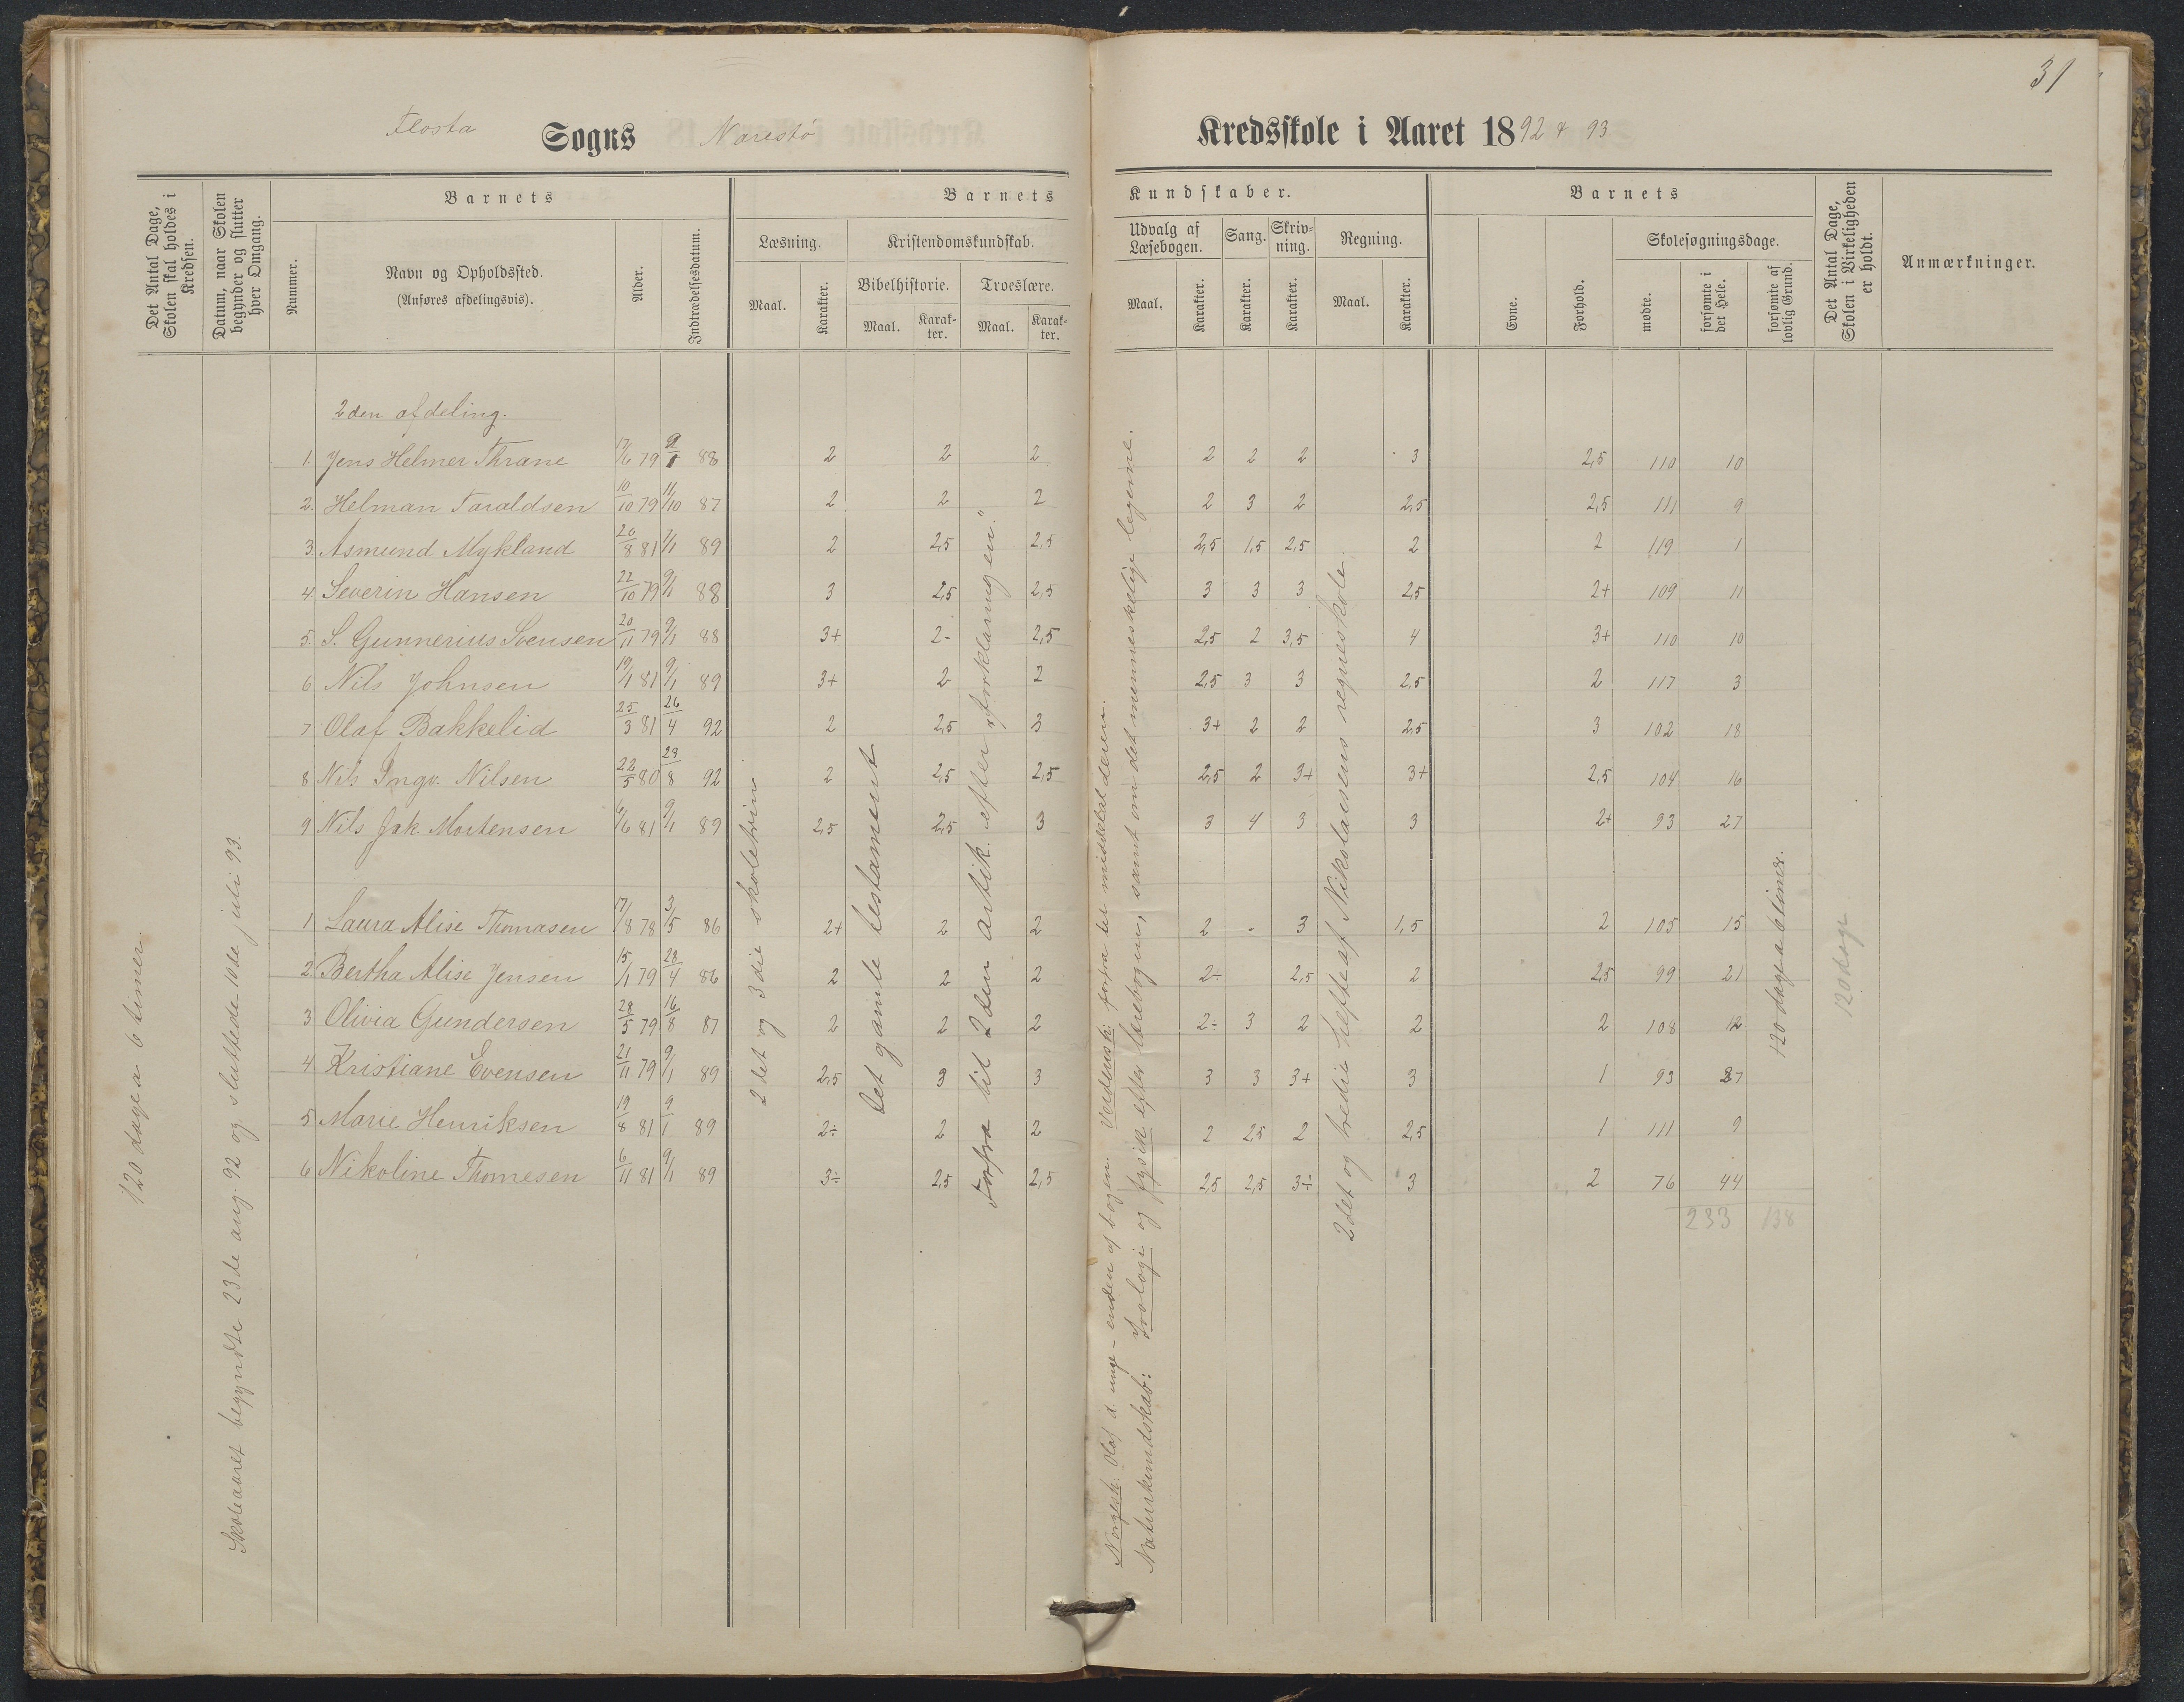 31
Flosta Sogns Narestø Kredsskole i Aaret 1892 & 93
Det Antal Dage, Skolen skal holdes i Kredsen.
Datum, naar Skolen begynder og slutter hver Omgang.
Barnets
Nummer.
Navn og Opholdssted.
(Anføres afdelingsvis).
Alder.
Indtrædelsesdatum.
Barnets Kundskaber.
Læsning.
Maal.
Karakter.
Kristendomskundskab.
Bibelhistorie.
Maal.
Karakter.
Troeslære.
Maal.
Karakter.
Udvalg af Læsebogen.
Maal.
Karakter.
Sang.
Karakter.
Skrivning.
Karakter.
Regning.
Maal.
Karakter.
Barnets
Evne.
Forhold.
Skolesøgningsdage.
mødte.
forsømte i det Hele.
forsømte af lovlig Grund.
Det Antal Dage, Skolen i Virkeligheden er holdt.
Anmærkninger.
120 dage a 6 timer.
Skoleaaret begyndte 23de aug. 92 og sluttede 10de juli 93.
2den afdeling.
1. Jens Helmer Thrane 17/6 79 9/1 88 2 2 2 2 2 2 3 2,5 110 10
2. Helman Taraldsen 10/10 79 11/10 87 2 2 2 2 3 2 2,5 2,5 111 9
3. Asmund Mykland 20/8 81 7/1 89 2 2,5 2,5 2,5 1,5 2,5 2 2 119 1
4. Severin Hansen 22/10 79 9/1 88 3 2,5 2,5 3 3 3 2,5 2+ 109 11
5. S. Gunnerius Svensen 20/11 79 9/1 88 3+ 2- 2,5 2,5 2 3,5 4 3+ 110 10
6 Nils Johnsen 19/1 81 9/1 89 3+ 2 2 2,5 3 3 2,5 2 117 3
7 Olaf Bakkelid 25/3 81 26/4 92 2 2,5 3 3+ 2 2 2,5 3 102 18
8 Nils Ingv. Nilsen 22/5 80 23/8 92 2 2,5 2,5 2,5 2 3+ 3+ 2,5 104 16
9 Nils Jak. Mortensen 6/6 81 9/1 89 2,5 2,5 3 3 4 3 3 2+ 93 27
1 Laura Alise Thomasen 17/8 78 3/5 86 2+ 2 2 2 - 3 1,5 2 105 15
2. Bertha Alise Jensen 15/1 79 28/4 86 2 2 2 2÷ 2,5 2 2,5 99 21
3 Olivia Gundersen 28/5 79 16/8 87 2 2 2 2÷ 3 2 2 2 108 12
4 Kristiane Evensen 21/11 79 9/1 89 2,5 3 3 3 3 3+ 3 1 93 27
5 Marie Henriksen 19/8 81 9/1 89 2÷ 2 2 2 2,5 2 2,5 1 111 9
6 Nikoline Thomesen 6/11 81 9/1 89 3÷ 2,5 2,5 2,5 2,5 3÷ 3 2 76 44
233 138
2det og 3die skoletrin
Det gamle testament
Forfra til 2den artik. efter "forklaringen."
Norgesh. Olaf d unge - enden af bogen. Verdensh. forfra til middelalderen.
Naturkundskab: Zoologi og fysik efter læsebogen, samt om det menneskelige legeme.
2det og tredie hefte af Nikolaisens regneskole.
120 dage a 6 timer.
120 dage